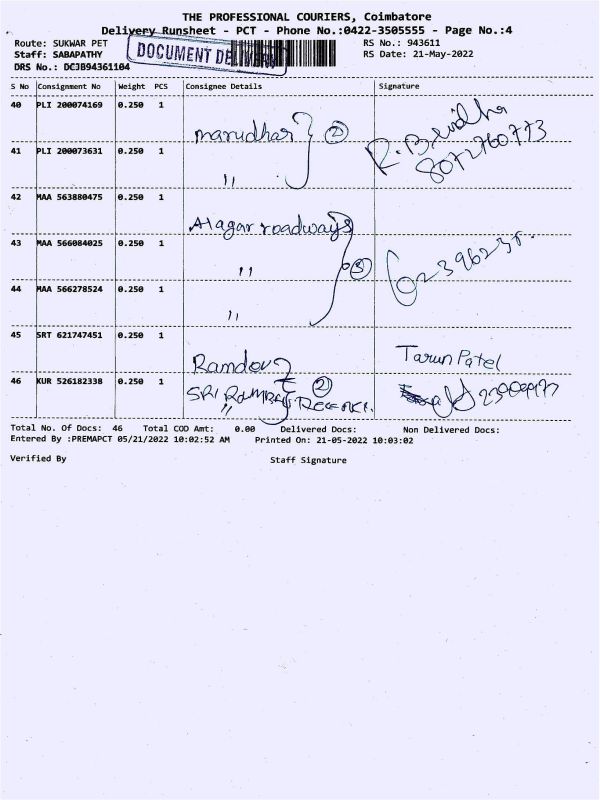 THE PROFESSIONAL COURIERS, Coimbatore
Delivery Runsheet - PCT - Phone No.:0422-3505555 - Page No.:4
Route: SUKWAR PET
RS No.: 943611
Staff: SABAPATHY
DOCUMENT DELIVERY
RS Date: 21-May-2022
DRS No.: DCJB94361104
S No Consignment No Weight PCS Consignee Details Signature
40 PLI 200074169 0.250 1
marudhar 2
R. Bruidha
8072760773
41 PLI 200073631 0.250 1
"
42 MAA 563880475 0.250 1
Alagar roadways
43 MAA 566084025 0.250 1
" 3
44 MAA 566278524 0.250 1
"
45 SRT 621747451 0.250 1
Ramdev
Tarun Patel
46 KUR 526182338 0.250 1
SRI 2
"
Total No. Of Docs: 46 Total COD Amt: 0.00 Delivered Docs: Non Delivered Docs:
Entered By :PREMAPCT 05/21/2022 10:02:52 AM Printed On: 21-05-2022 10:03:02
Verified By Staff Signature